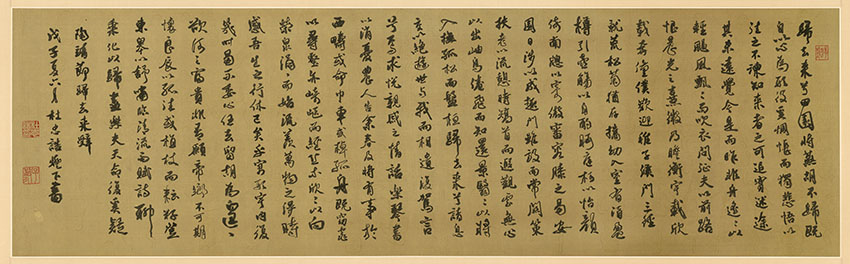 歸去來兮田園將蕪胡不歸既
自以心為形役奚惆悵而獨悲悟以
往之不諫知來者之可追實迷途
其未遠覺今是而昨非舟遙遙以
輕颺風飄飄而吹衣問征夫以前路
恨晨光之熹微乃瞻衡宇載欣
載奔僮僕歡迎稚子候門三逕
就荒松菊猶存攜幼入室有酒盈
樽引壺觴以自酌眄庭柯以怡顏
倚南窗以寄傲審容膝之易安
園日涉以成趣門雖設而常關策
扶老以流憩時矯首而遐觀雲無心
以出岫鳥倦飛而知還景翳翳以將
入撫孤松而盤桓歸去來兮請息
交以絕遊世與我而相違復駕言
兮焉求悅親戚之情話樂琴書
以消憂農人告余春及將有事於
西疇或命巾車或棹孤舟既窈窕
以尋壑亦崎嶇而經丘木欣欣以向
榮泉涓涓而始流羨萬物之得時
感吾生之行休已矣乎寓形宇內復
幾時曷不委心任去留胡為遑遑
欲何之富貴非吾願帝鄉不可期
懷良辰以孤往或植杖而耘耔登
東皋以舒嘯臨清流而賦詩聊
乘化以歸盡樂夫天命復奚疑
陶靖節歸去來辭
戊子夏六月杜忠誥燈下書